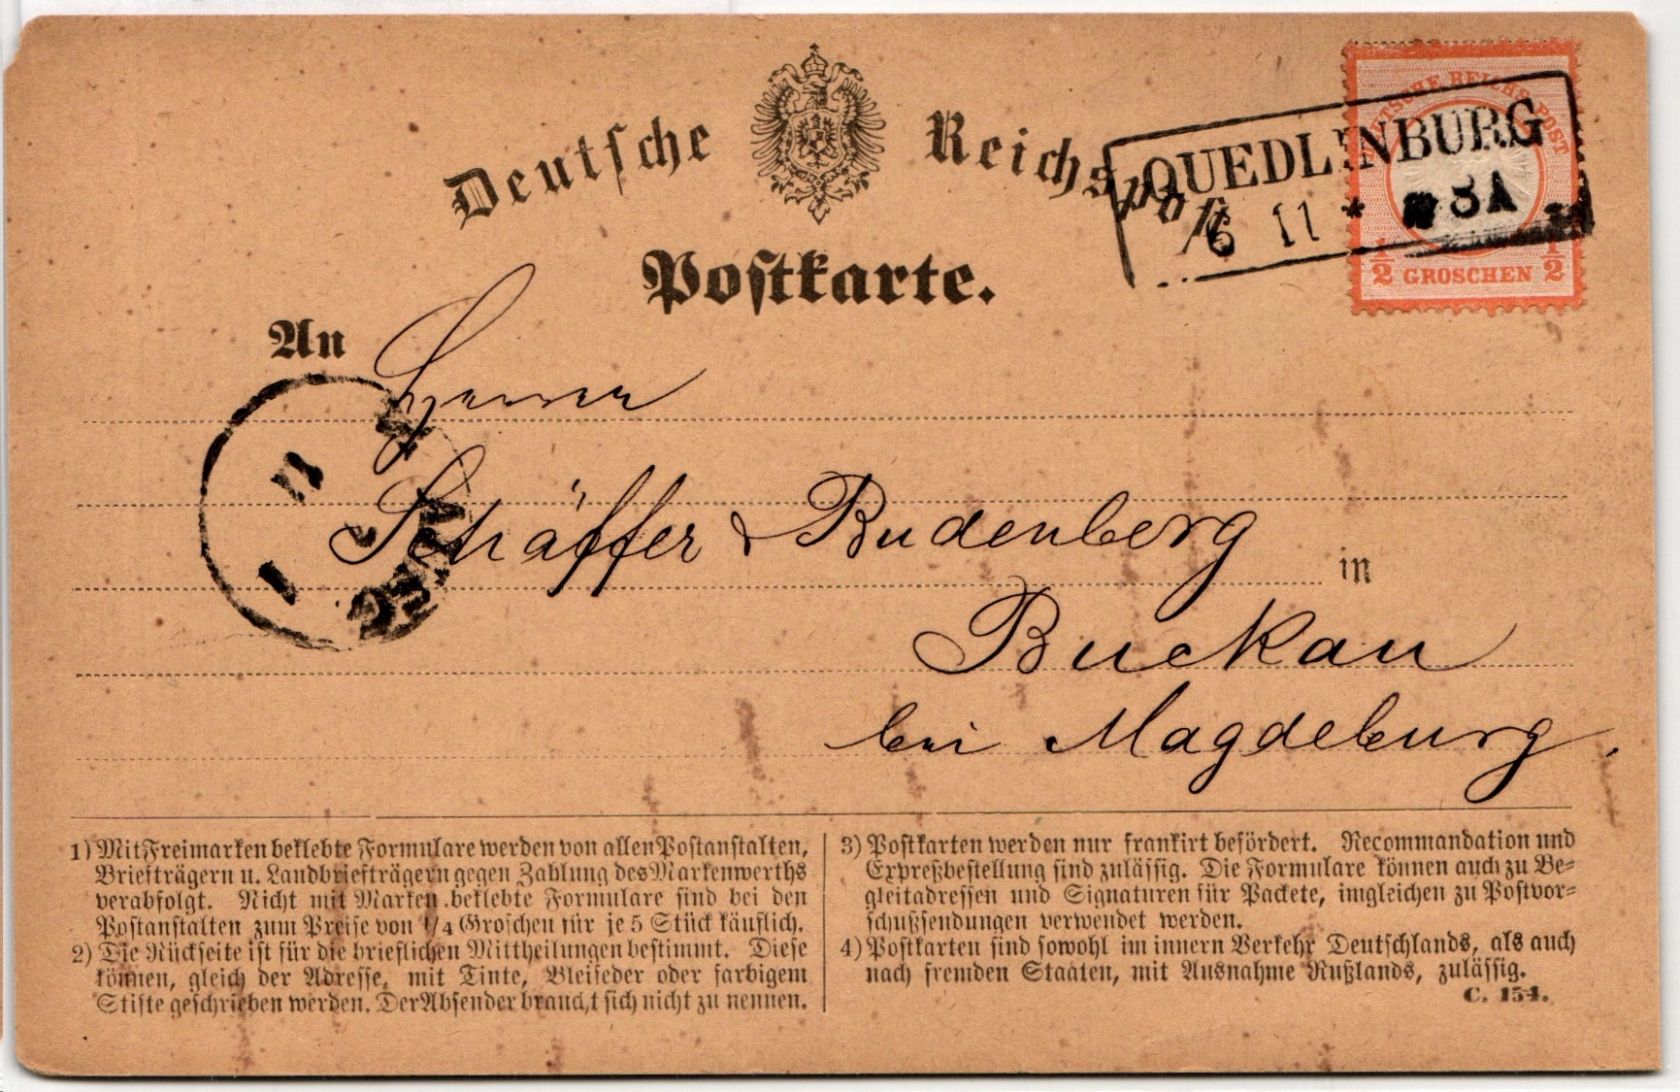 Deutsche Reichspost
Postkarte.
DEUTSCHE REICHS-POST
QUEDLINBURG
6 11 * 8A
1/2 GROSCHEN 1/2
An
Herren
Schäffer & Budenberg
in
Buckau
bei Magdeburg.
11
1) Mit Freimarken beklebte Formulare werden von allen Postanstalten,
Briefträgern u. Landbriefträgern gegen Zahlung des Markenwerths
verabfolgt. Nicht mit Marken beklebte Formulare sind bei den
Postanstalten zum Preise von 1/4 Groschen für je 5 Stück käuflich.
2) Die Rückseite ist für die brieflichen Mittheilungen bestimmt. Diese
können, gleich der Adresse, mit Tinte, Bleifeder oder farbigem
Stifte geschrieben werden. Der Absender braucht sich nicht zu nennen.
3) Postkarten werden nur frankirt befördert. Recommandation und
Expreßbestellung sind zulässig. Die Formulare können auch zu Be-
gleitadressen und Signaturen für Packete, imgleichen zu Postvor-
schußsendungen verwendet werden.
4) Postkarten sind sowohl im innern Verkehr Deutschlands, als auch
nach fremden Staaten, mit Ausnahme Rußlands, zulässig.
C. 154.